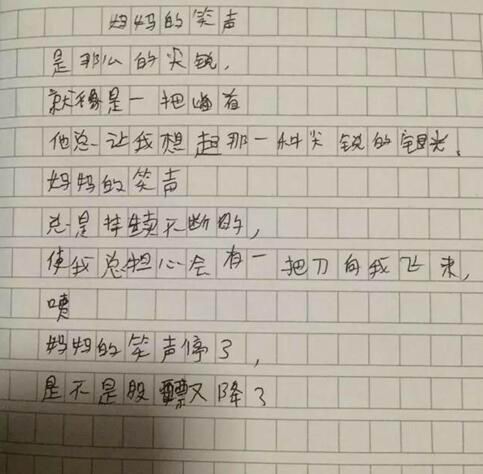 妈妈的笑声
是那么的尖锐,
就像是一把
他总让我想起那一种尖锐的眼光、
妈妈的笑声
总是持续不断的,
使我总担心会有一把刀向我飞来,
咦
妈妈的笑声停了,
是不是股票又降了